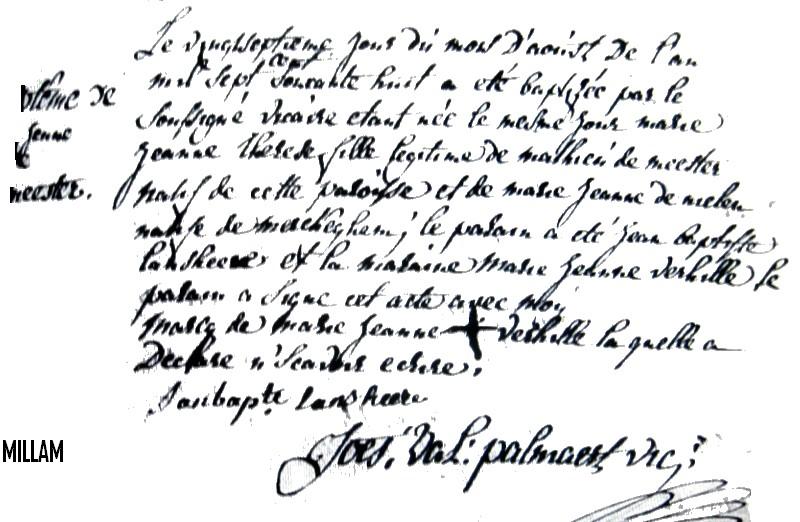 Le vingtseptieme jour du mois D'aoust De l'an
mil sept cent soixante huit a eté baptizée par le
soussigné vicaire etant née le mesme jour marie
jeanne therese fille legitime de mathieu de meester
natif de cette paroisse et de marie jeanne de
natife de merckeghem; le parain a eté jean baptiste
lansheere et la maraine marie jeanne verhille le
parain a signe cet acte avec moy
marcq de marie jeanne verhille la quelle a
Declare n'scavoir ecrire.
Janbapte lansheere
Joes. Val: palmaert vic:
ptême de
jeanne
meester.
MILLAM